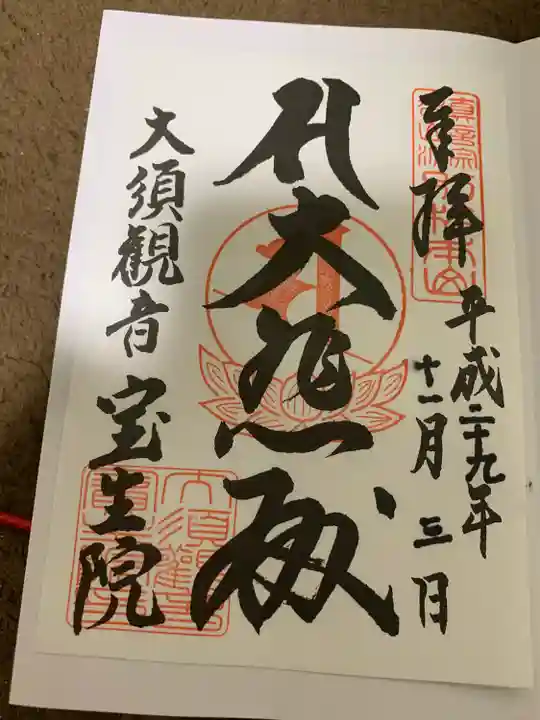 奉拝
平成二十九年
十一月三日
大悲殿
大須観音 宝生院
大須観